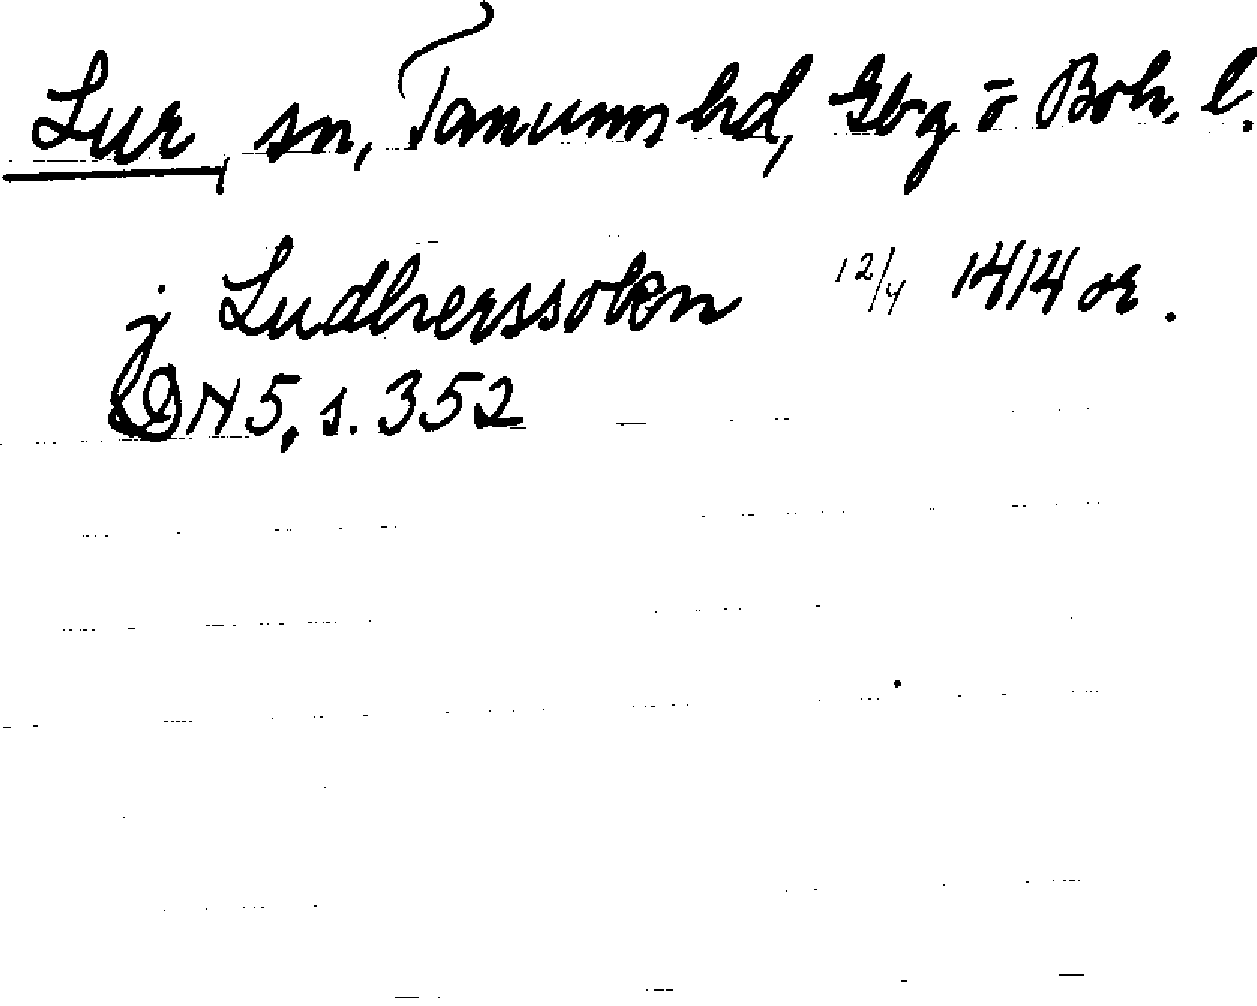 Lur, sn, Tanums hd, Gbg o Boh. l.
j Ludherssokn 12/4 1414 or.
DN 5, s. 352